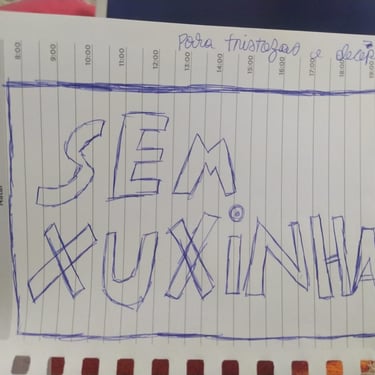 Para tristazas e decep
8:00 9:00 10:00 11:00 12:00 13:00 14:00 15:00 16:00 17:00 18:00 19:00
SEM
XUXINHA
Natal